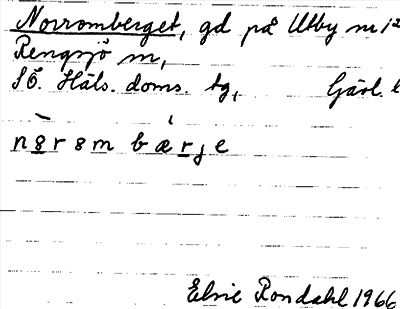 Norromberget, gd på Utby nr 12
Rengsjö sn,
SÖ. Häls. doms. tg, Gävl. l
n8r8m bærje
Elsie Rondahl 1966